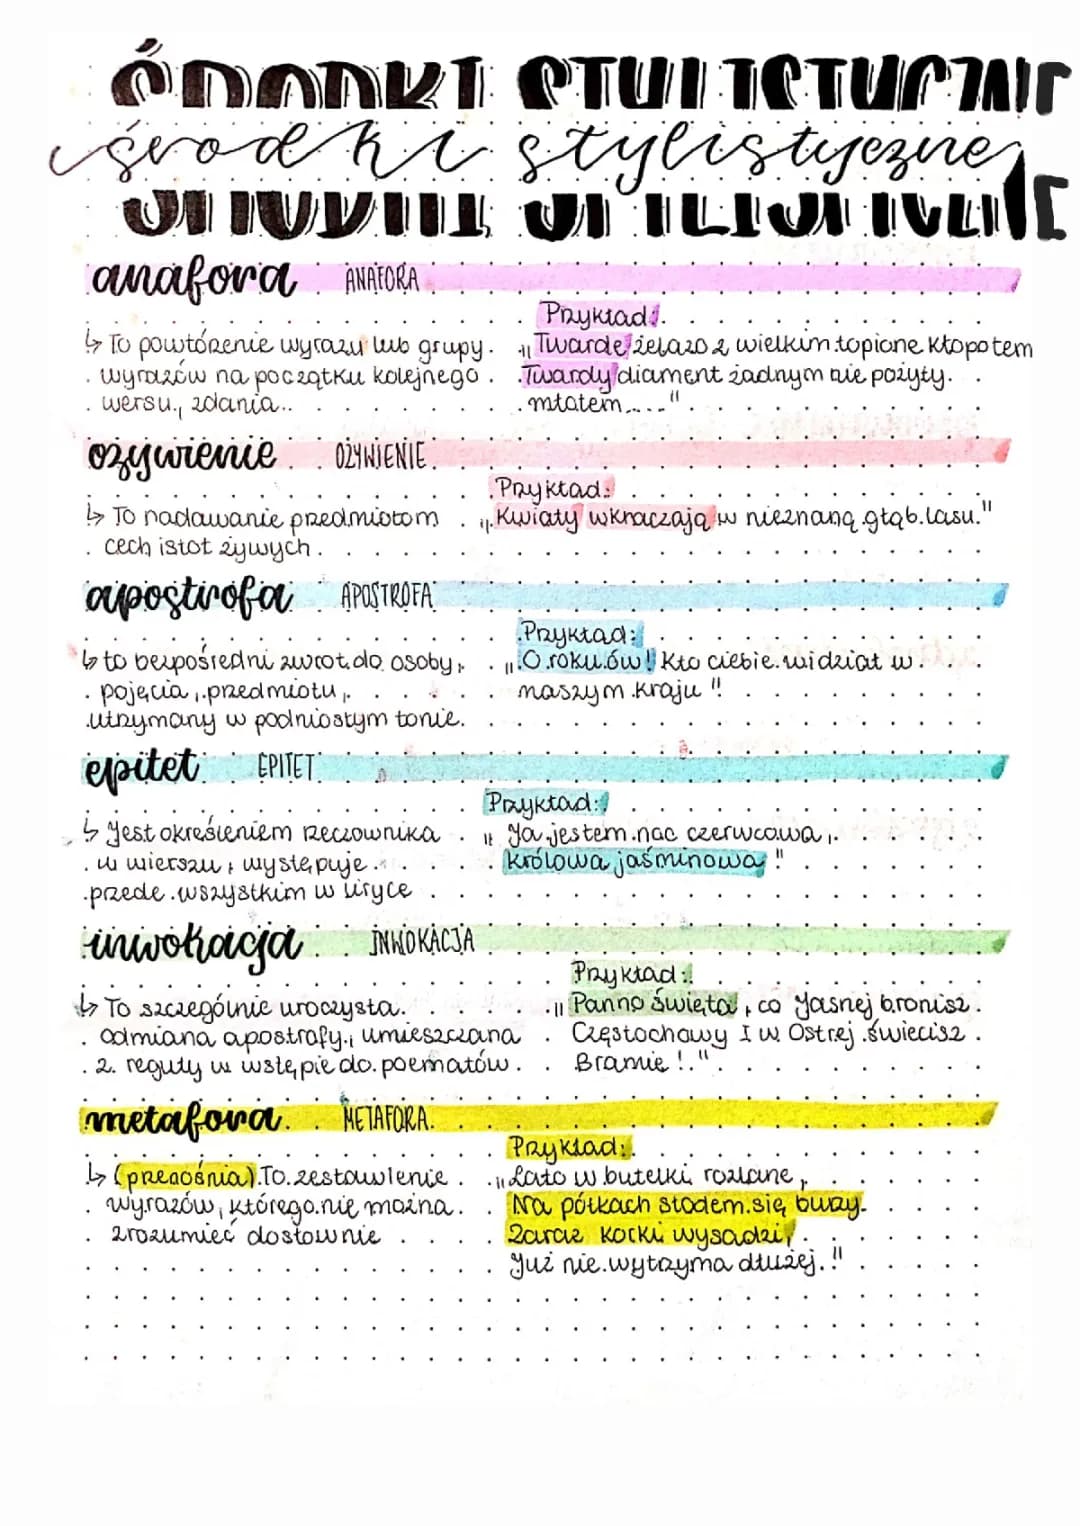 ŚRODKI STYLISTYCZNE
środki stylistyczne
anafora ANAFORA
Przykład:
↳ To powtórzenie wyrazu lub grupy
wyrazów na początku kolejnego
wersu, zdania..
„Twarde żelazo z wielkim topione kłopotem
Twardy diament żadnym nie pożyty
młotem...."
ożywienie OŻYWIENIE
Przykład:
↳ To nadawanie przedmiotom
cech istot żywych.
„Kwiaty wkraczają w nieznaną głąb lasu."
apostrofa APOSTROFA
Przykład:
↳ to bezpośredni zwrot do osoby,
pojęcia, przedmiotu,
utrzymany w podniosłym tonie.
„O roku ów! Kto ciebie widział w
naszym kraju"!
epitet EPITET
Przykład:
↳ Jest określeniem rzeczownika
w wierszu, występuje
przede wszystkim w liryce
„Ja jestem noc czerwcowa,
królowa jaśminowa"
inwokacja INWOKACJA
Przykład:
↳ To szczególnie uroczysta
odmiana apostrofy, umieszczana
z reguły we wstępie do poematów.
„Panno Święta, co Jasnej bronisz
Częstochowy I w Ostrej świecisz
Bramie!."
metafora METAFORA
Przykład:
↳ (przenośnia) To zestawienie
wyrazów, którego nie można
zrozumieć dosłownie
„Lato w butelki rozlane,
Na półkach słodem się burzy.
Zaraz korki wysadzi,
Już nie wytrzyma dłużej."